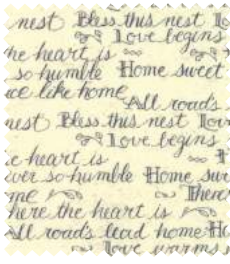 nest Bless this nest
Love begins
he heart is
so humble Home sweet
ce like home
All roads
nest Bless this nest
Love begins
e heart is
ver so humble Home swe
me There
here the heart is
All roads lead home
Love warms